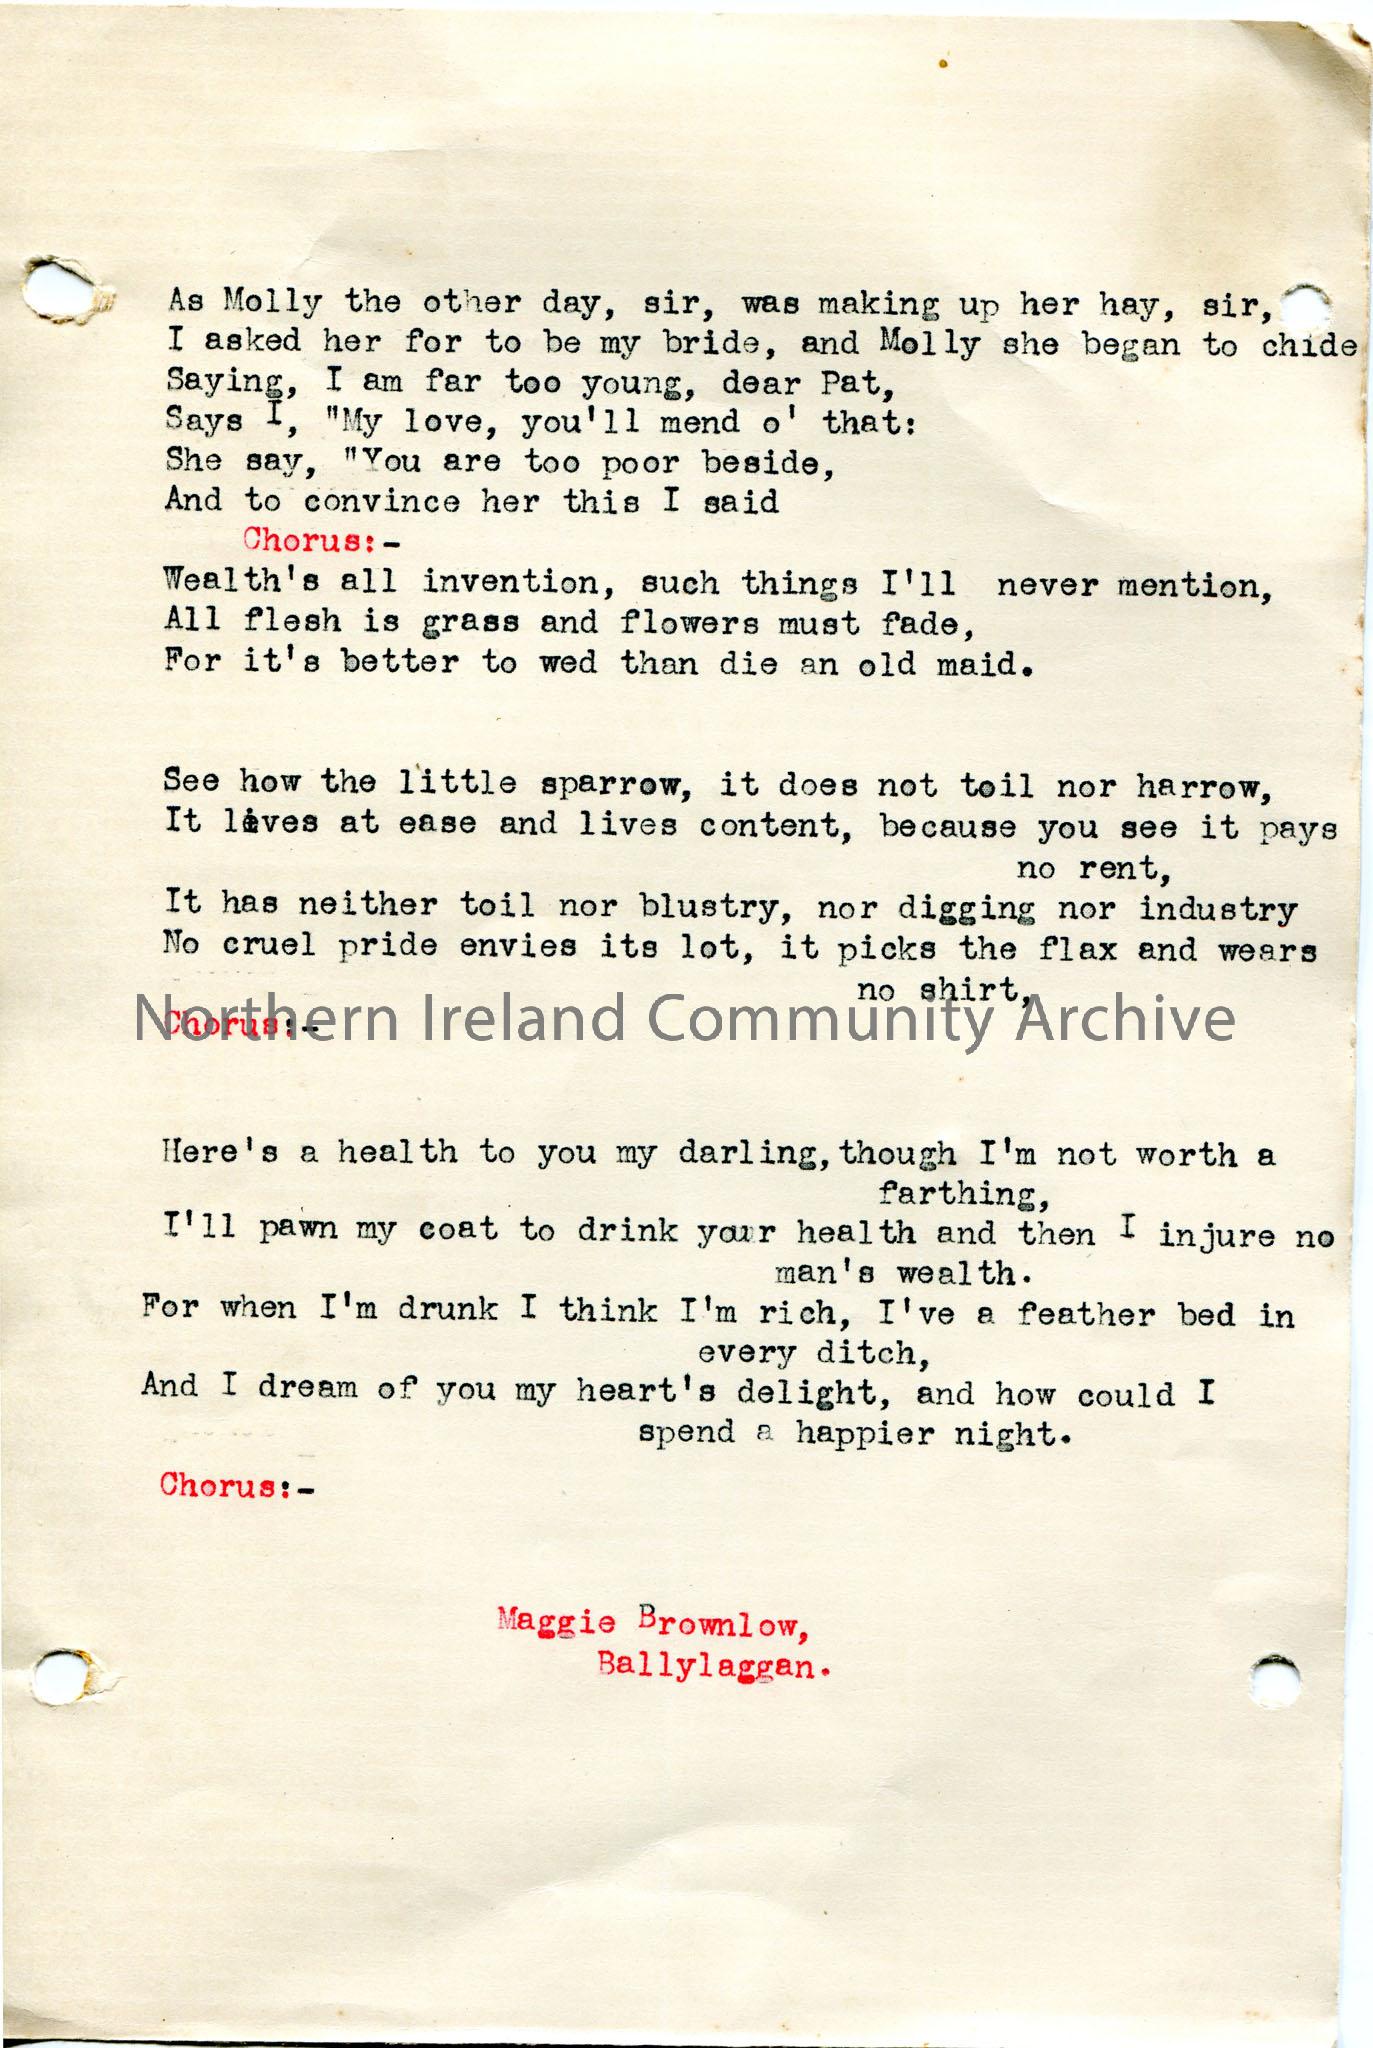 As Molly the other day, sir, was making up her hay, sir,
I asked her for to be my bride, and Molly she began to chide
Saying, I am far too young, dear Pat,
Says I, "My love, you'll mend o' that:
She say, "You are too poor beside,
And to convince her this I said
Chorus:-
Wealth's all invention, such things I'll never mention,
All flesh is grass and flowers must fade,
For it's better to wed than die an old maid.
See how the little sparrow, it does not toil nor harrow,
It lives at ease and lives content, because you see it pays
no rent,
It has neither toil nor blustry, nor digging nor industry
No cruel pride envies its lot, it picks the flax and wears
no shirt,
Chorus:-
Northern Ireland Community Archive
Here's a health to you my darling,though I'm not worth a
farthing,
I'll pawn my coat to drink your health and then I injure no
man's wealth.
For when I'm drunk I think I'm rich, I've a feather bed in
every ditch,
And I dream of you my heart's delight, and how could I
spend a happier night.
Chorus:-
Maggie Brownlow,
Ballylaggan.